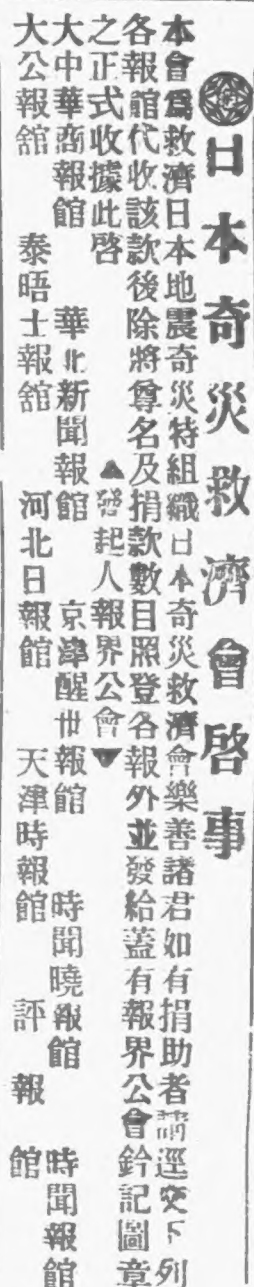 日本奇災救濟會啓事
本會爲救濟日本地震奇災特組織日本奇災救濟會樂善諸君如有捐助者請逕交下列
各報館代收該款後除將尊名及捐款數目照登各報外並發給蓋有報界公會鈐記圖章
之正式收據此啓　▲發起人報界公會▼
大中華商報館　華北新聞報館　京津醒世報館　時聞曉報館　時聞報館
大公報館　泰晤士報館　河北日報館　天津時報館　評報館